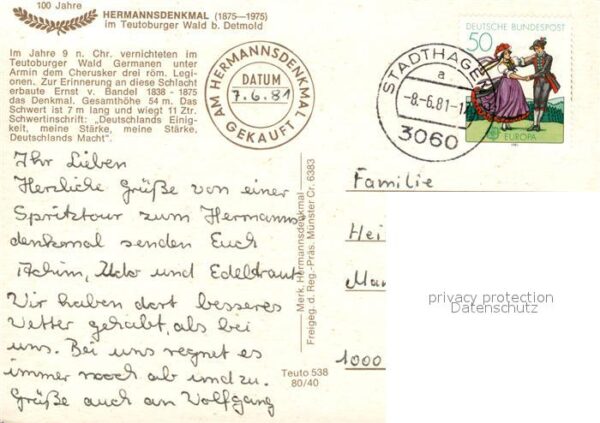 100 Jahre
HERMANNSDENKMAL (1875—1975)
im Teutoburger Wald b. Detmold
Im Jahre 9 n. Chr. vernichteten im
Teutoburger Wald Germanen unter
Armin dem Cherusker drei röm. Legi-
onen. Zur Erinnerung an diese Schlacht
erbaute Ernst v. Bandel 1838 - 1875
das Denkmal. Gesamthöhe 54 m. Das
Schwert ist 7 m lang und wiegt 11 Ztr.
Schwertinschrift: „Deutschlands Einig-
keit, meine Stärke, meine Stärke,
Deutschlands Macht".
AM HERMANNSDENKMAL
DATUM
7.6.81
GEKAUFT
STADTHAGEN
a
-8.-6.81-1
3060
DEUTSCHE BUNDESPOST
50
EUROPA
Ihr Lieben
Herzliche Grüße von einer
Spritztour zum Hermanns
denkmal senden Euch
Achim, Udo und Edeltraut
Wir haben dort besseres
Wetter gehabt, als bei
uns. Bei uns regnet es
immer noch ab und zu.
Grüße auch an Wolfgang
Merk. Hermannsdenkmal
Freigeg. d. Reg.-Präs. Münster Cr. 6383
Teuto 538
80/40
Familie
Hei
Man
1000
privacy protection
Datenschutz